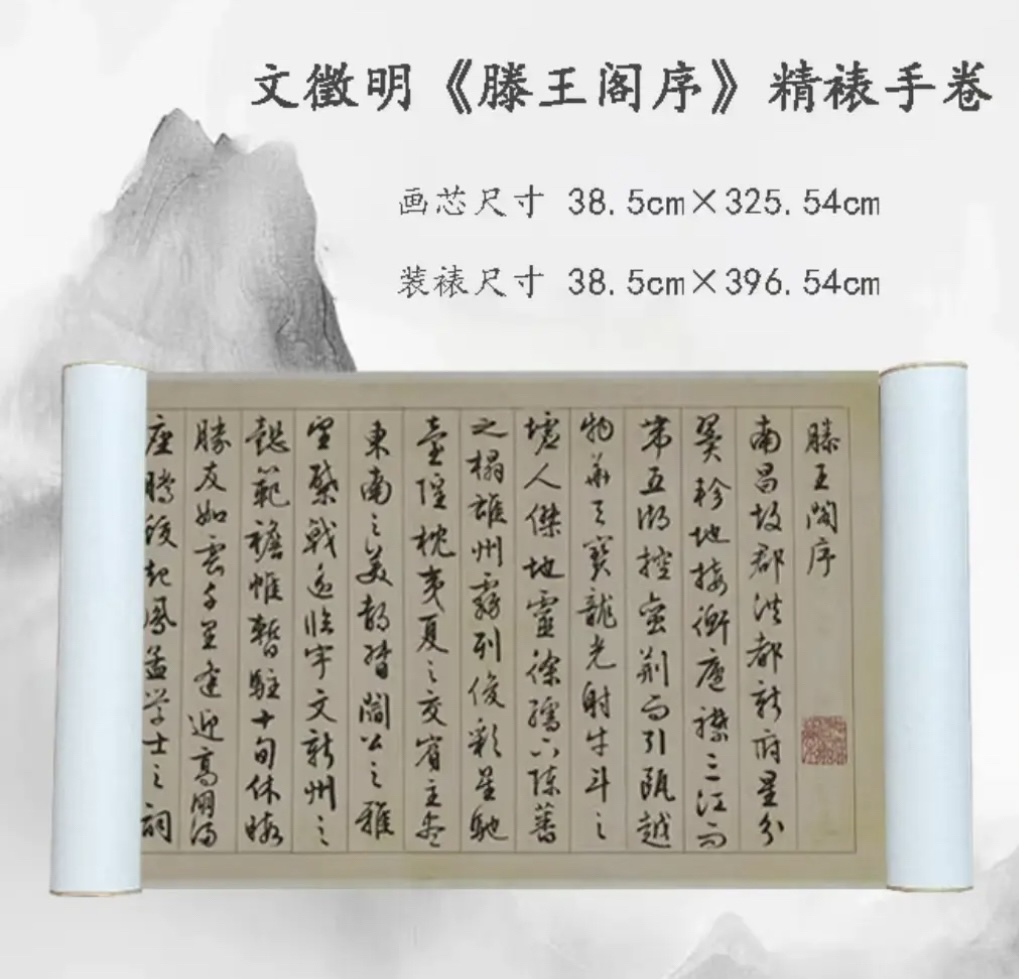 文徵明《滕王阁序》精裱手卷
画芯尺寸 38.5cm×325.54cm
装裱尺寸 38.5cm×396.54cm
滕王閣序
南昌故郡洪都新府星分
翼軫地接衡廬襟三江而
帶五湖控蛮荆而引甌越
物華天寶龍光射牛斗之
墟人傑地靈徐孺下陳蕃
之榻雄州霧列俊彩星馳
臺隍枕夷夏之交賓主盡
東南之美都督閻公之雅
望棨戟遥臨宇文新州之
懿範襜帷暫駐十旬休暇
勝友如雲千里逢迎高朋滿
座騰蛟起鳳孟学士之詞